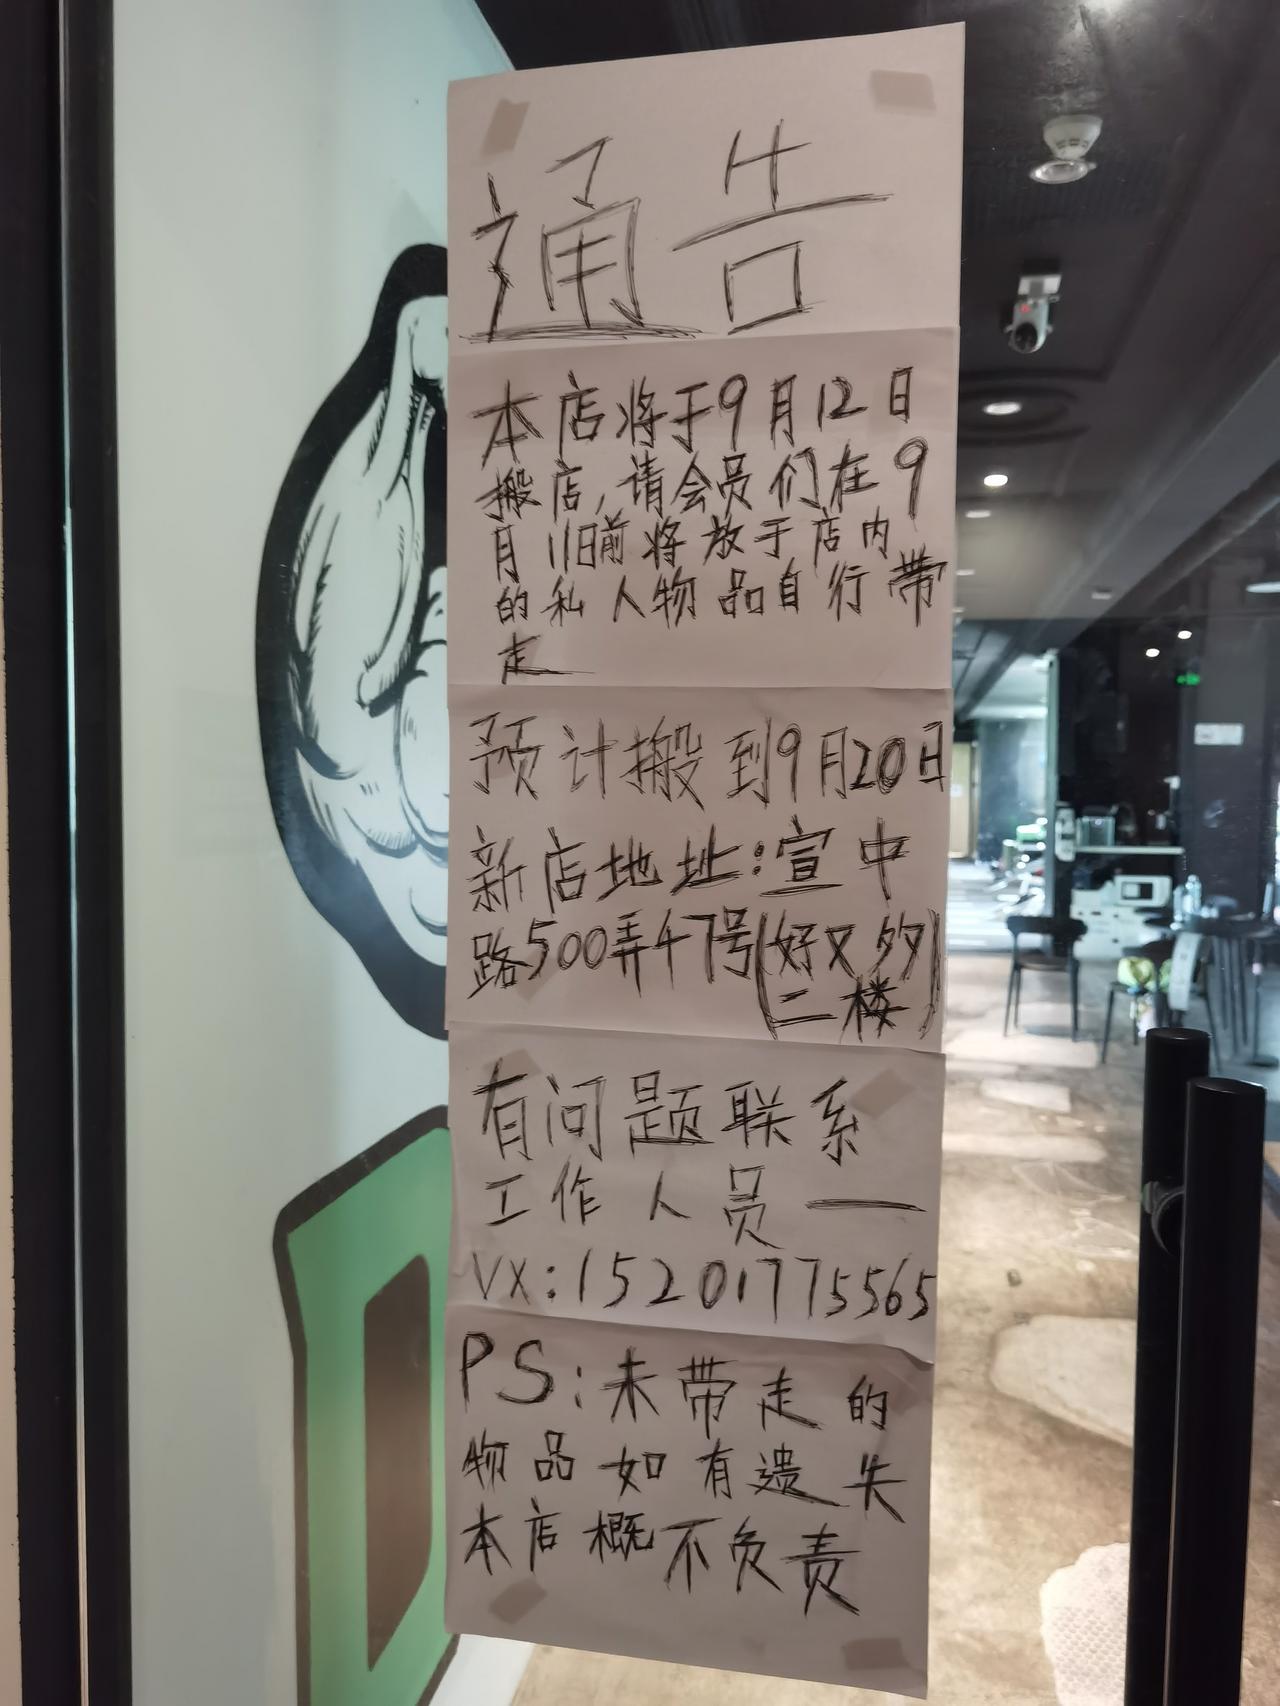 通告
本店将于9月12日
搬店,请会员们在9
月11日前将放于店内
的私人物品自行带
走
预计搬到9月20日
新店地址:宣中
路500弄47号(好又多
二楼)
有问题联系
工作人员——
VX:15201775565
PS:未带走的
物品如有遗失
本店概不负责